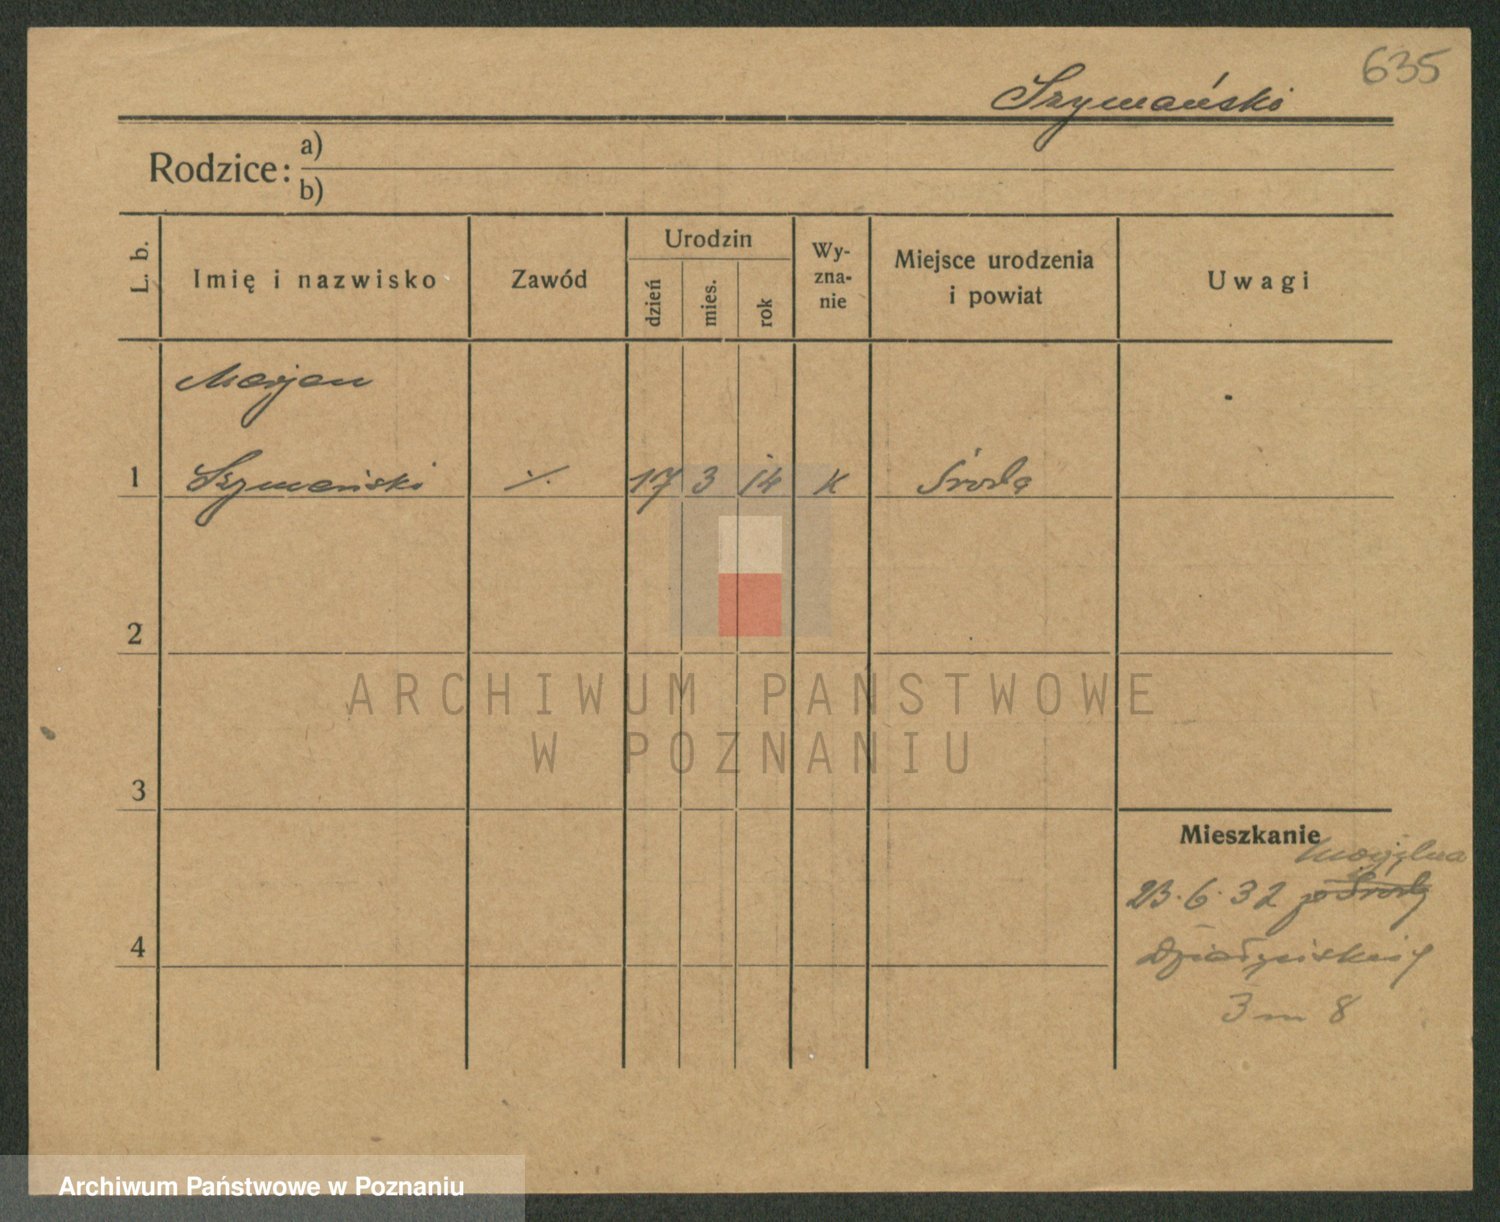 635
Szymański
Rodzice: a)
b)
L. b.
Imię i nazwisko
Zawód
Urodzin
dzień
mies.
rok
Wy-
zna-
nie
Miejsce urodzenia
i powiat
Uwagi
Marjan
1 Szymański ./. 17 3 14 k Środa
2
3
4
Mieszkanie
23.6.32
Działyńskich
3 m 8
ARCHIWUM PAŃSTWOWE
W POZNANIU
Archiwum Państwowe w Poznaniu